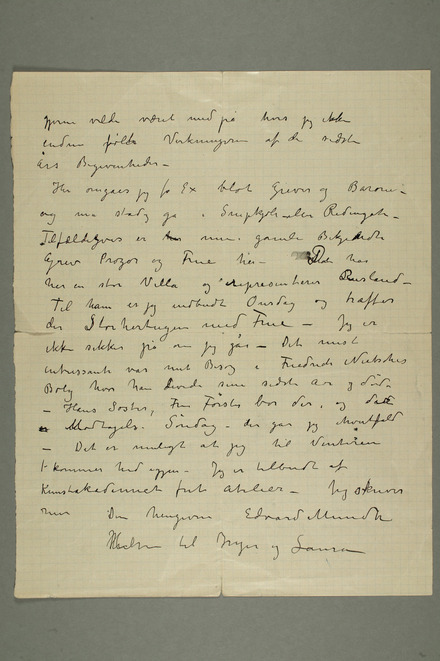 gjerne vilde været med på hvis jeg ikke
endnu følte Virkningerne af de sidste
års Begivenheder –
Her omgaaes jeg fo Ex blot Grever og Baroner –
og må stadig gå i Smoking eller Redingote –
Tilfældigvis er mine gamle Bekjendte
Grev Prozor og Frue her – har
her en stor Villa og representerer Rusland –
Til ham er jeg indbudt Onsdag og træffer
der Storhertugen med Frue – Jeg er
ikke sikker på om jeg går – Det mest
interessante var mit Besøg i Friedrich Nietsches
Bolig hvor han levede sine sidste Aar og døde
– Hans Søster, Fru Förster bor der, og
Modtagels. Søndag – der gar jeg
– Det er muligt at jeg til Vinteren
kommer hid igjen – Jeg er tilbudt af
Kunstakademiet frit Atelier – Jeg skriver
mer Din hengivne Edvard Munch
Hilsen til Inger og Laura